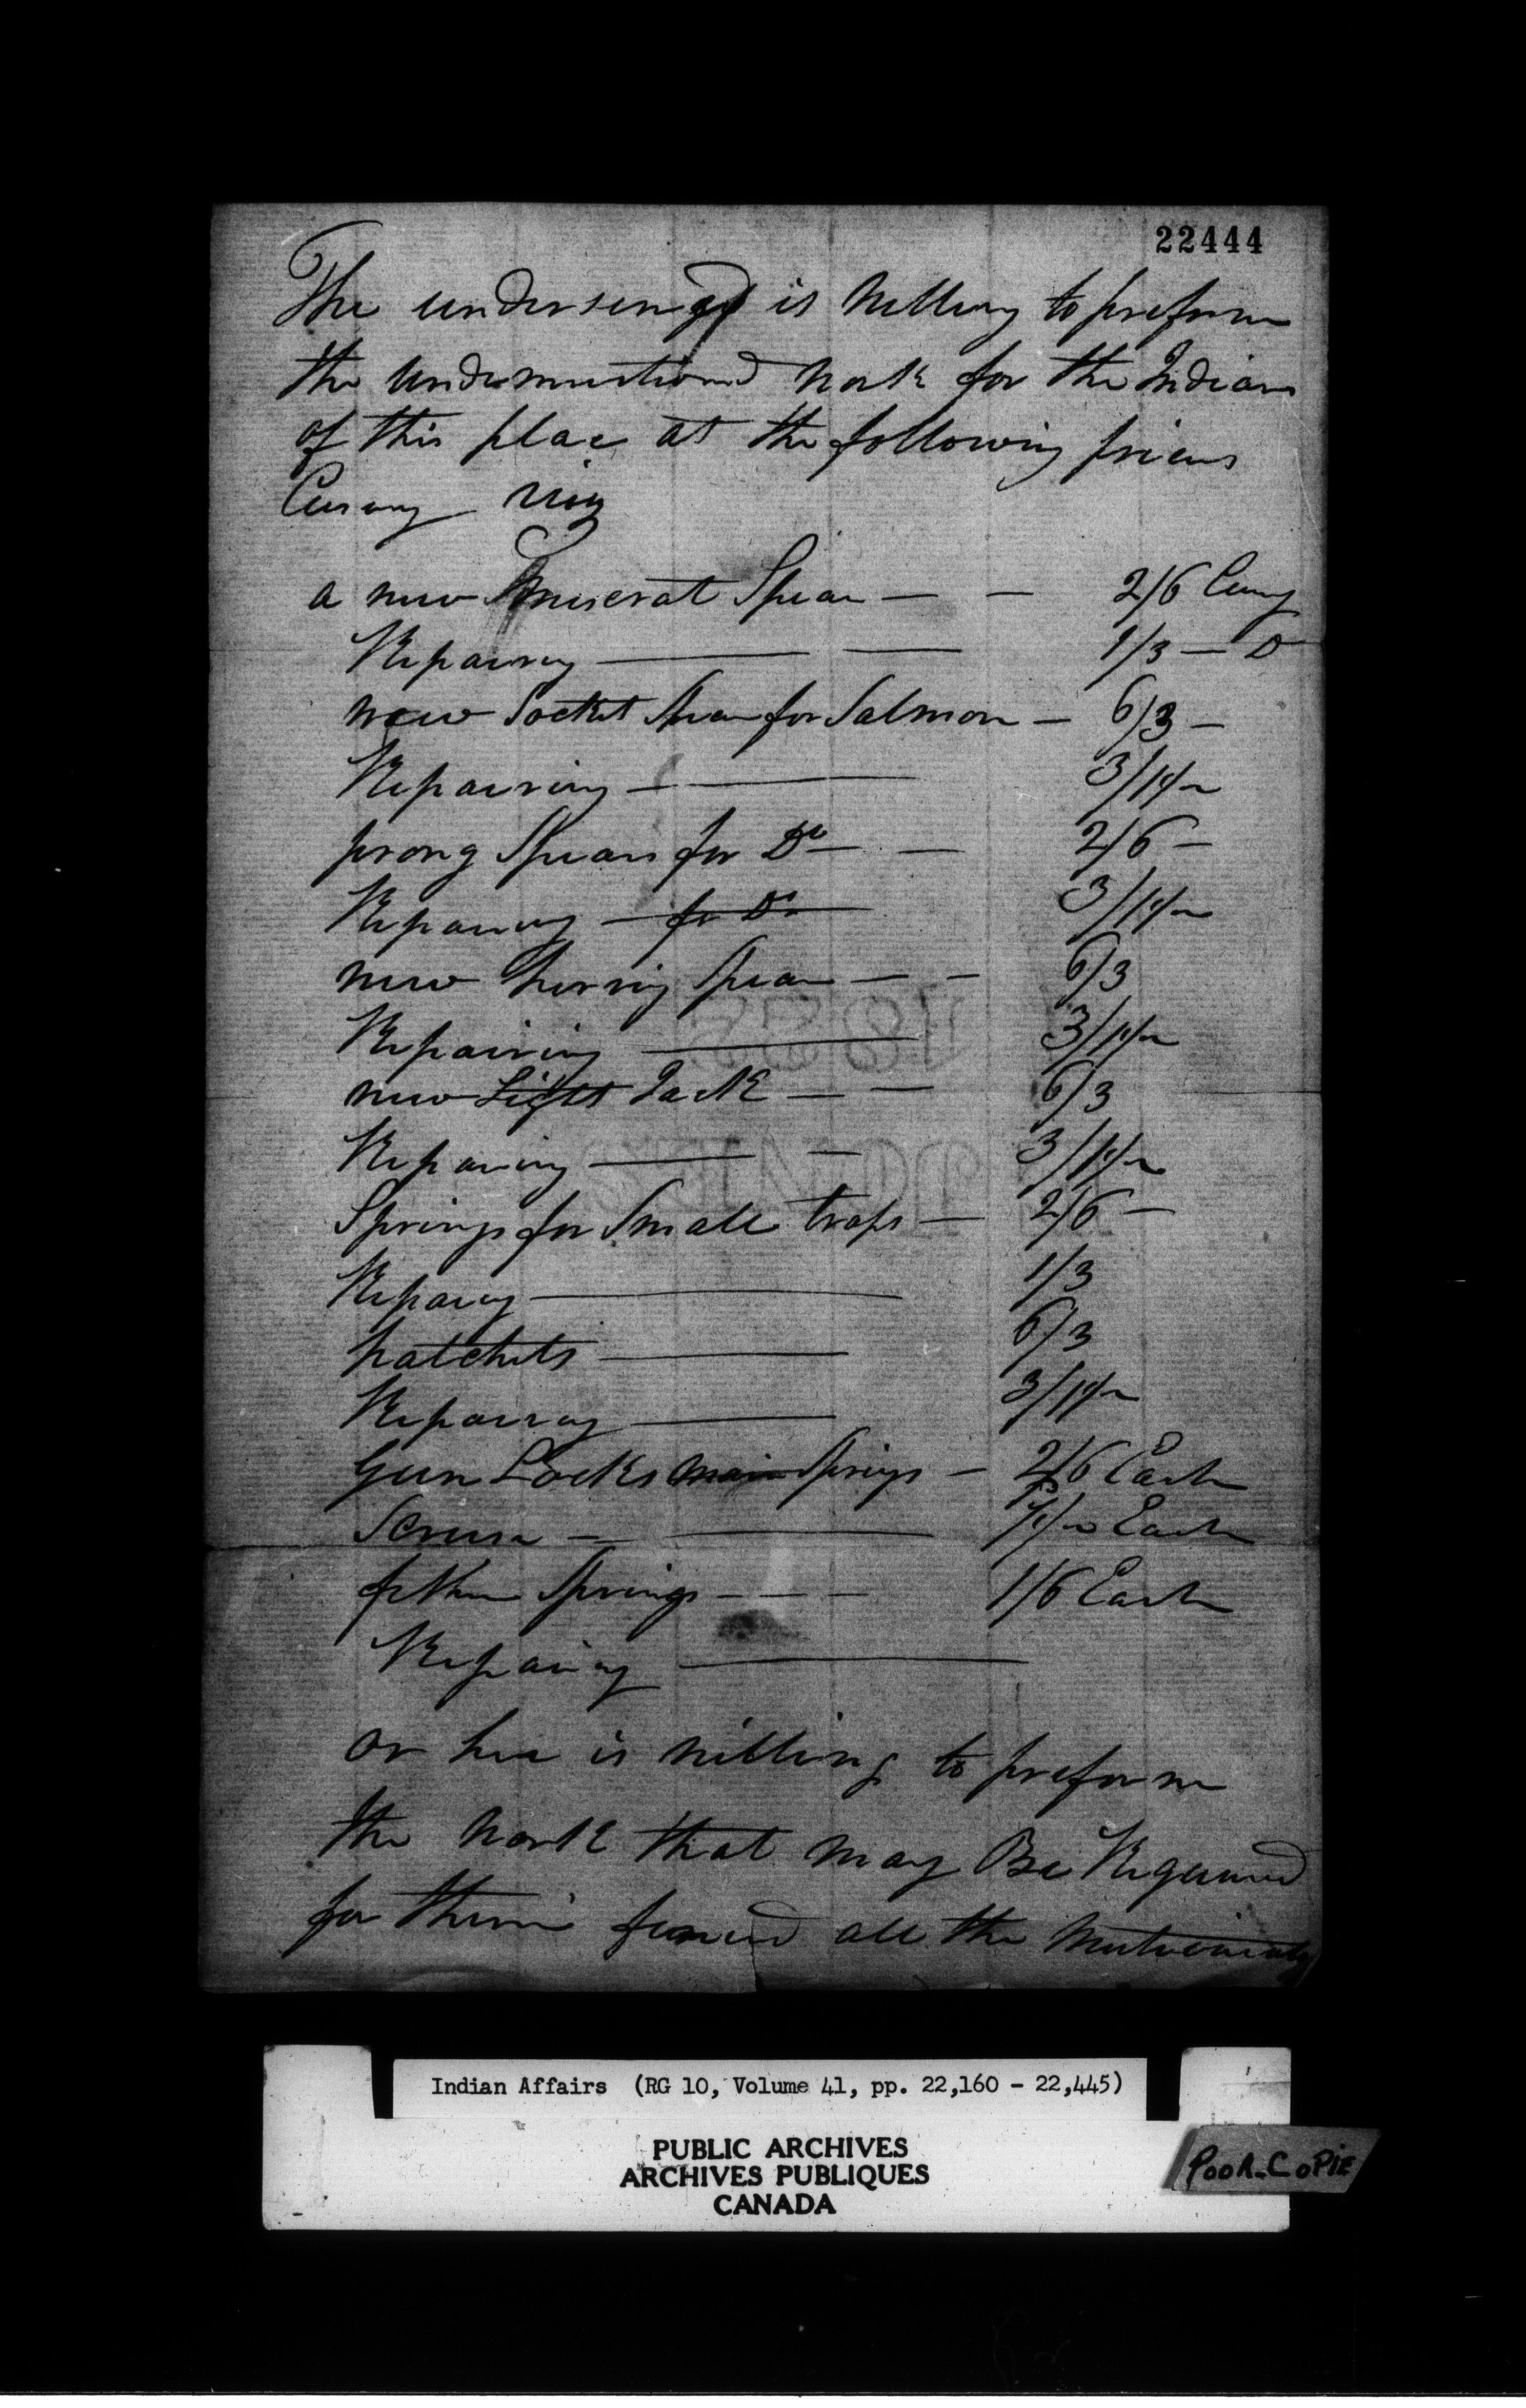 22444
The undersengd is Willing to preform
the undermentioned Work for the Indians
of this place at the following prices
Curancy Viz
a new Muscrat Spear — — 2/6 Curry
Repairing — — 1/3 — Do
new Socket Spear for Salmon — 6/3 —
Repairing — — 3/1½
prong Spears for Do — — 2/6 —
Repairing — for Do 3/1½
new herring Spear — — 6/3
Repairing — 3/1½
new Light Jack — — 6/3
Repairing — — 3/1½
Springs for Small traps — 2/6 —
Repairing — 1/3
hatchets — 6/3
Repairing — 3/1½
Gun Locks main Springs — 2/6 Each
Screws — — Each
Springs — — — 1/6 Each
Repairing —
or hee is willing to preform
the Work that may Be Required
for them all the
Indian Affairs (RG 10, Volume 41, pp. 22,160 - 22,445)
PUBLIC ARCHIVES
ARCHIVES PUBLIQUES
CANADA
POOR COPIE